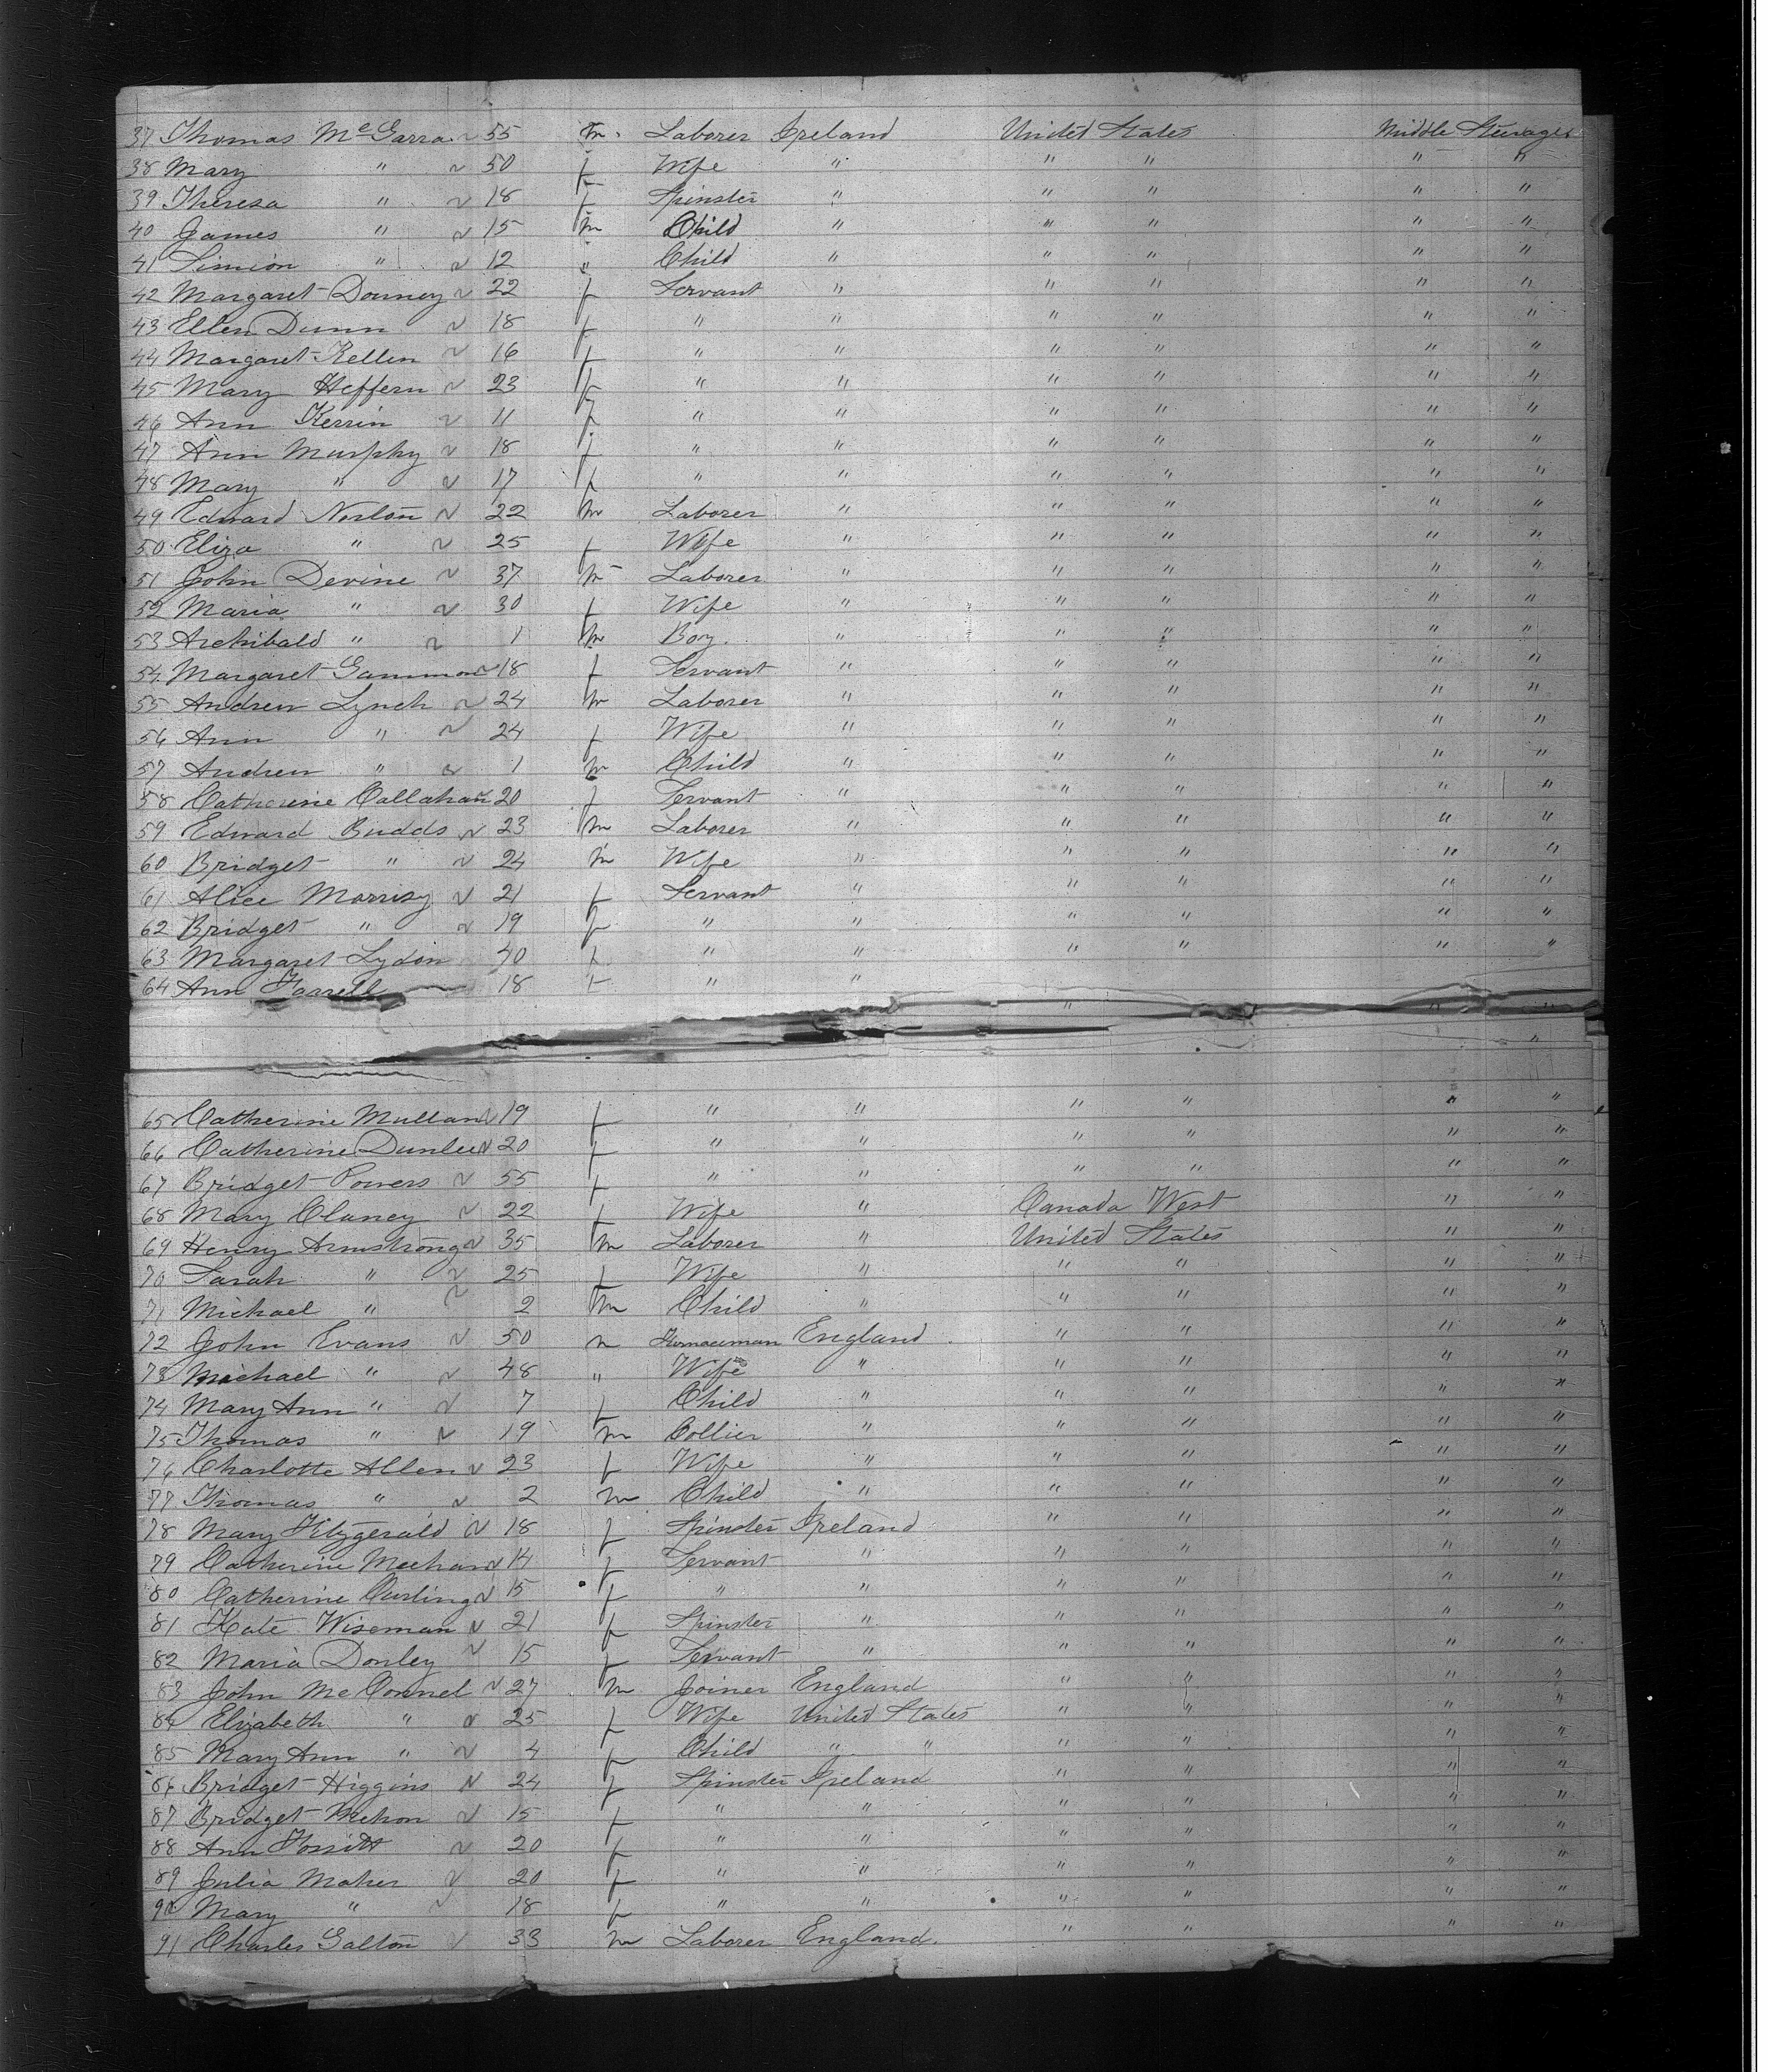 37 Thomas McGarra 55 m. Laborer Ireland United States Middle Steerage
38 Mary " 50 f Wife " " " " "
39 Theresa " 18 f Spinster " " " " "
40 James " 15 m Child " " " " "
41 Simion " 12 " Child " " " " "
42 Margaret Downey 22 f Servant " " " " "
43 Ellen Dunn 18 f " " " " " "
44 Margaret Kellin 16 f " " " " " "
45 Mary Heffern 23 f " " " " " "
46 Ann Kerrin 11 f " " " " " "
47 Ann Murphy 18 f " " " " " "
48 Mary " 17 f " " " " " "
49 Edward Norton 22 m Laborer " " " " "
50 Eliza " 25 f Wife " " " " "
51 John Devine 37 m Laborer " " " " "
52 Maria " 30 f Wife " " " " "
53 Archibald " 1 m Boy. " " " " "
54 Margaret Gammon 18 f Servant " " " " "
55 Andrew Lynch 24 m Laborer " " " " "
56 Ann " 24 f Wife " " " " "
57 Andrew " 1 m Child " " " " "
58 Catherine Callahan 20 f Servant " " " " "
59 Edward Budds 23 m Laborer " " " " "
60 Bridget " 24 m Wife " " " " "
61 Alice Morrisy 21 f Servant " " " " "
62 Bridget " 19 f " " " " " "
63 Margaret Lydon 40 f " " " " " "
64 Ann Farrell 18 f " " " " "
65 Catherine Mullan 19 f " " " " " "
66 Catherine Dunlee 20 f " " " " " "
67 Bridget Powers 55 f " " " " " "
68 Mary Clancy 22 f Wife " Canada West " "
69 Henry Armstrong 35 m Laborer " United States " "
70 Sarah " 25 f Wife " " " " "
71 Michael " 2 m Child " " " " "
72 John Evans 50 m Furnaceman England " " " "
73 Michael " 48 " Wife " " " " "
74 Mary Ann " 7 f Child " " " " "
75 Thomas " 19 m Collier " " " " "
76 Charlotte Allen 23 f Wife " " " " "
77 Thomas " 2 m Child " " " " "
78 Mary Fitzgerald 18 f Spinster Ireland " " " "
79 Catherine Meehan 14 f Servant " " " " "
80 Catherine Curling 15 f " " " " " "
81 Kate Wiseman 21 f Spinster " " " " "
82 Maria Donley 15 f Servant " " " " "
83 John McConnel 27 m Joiner England " " " "
84 Elizabeth " 25 f Wife United States " " " "
85 Mary Ann " 4 f Child " " " " " "
86 Bridget Higgins 24 f Spinster Ireland " " " "
87 Bridget Mehon 15 f " " " " " "
88 Ann 20 f " " " " " "
89 Julia Maher 20 f " " " " " "
90 Mary " 18 f " " " " " "
91 Charles Galton 33 m Laborer England. " " " "